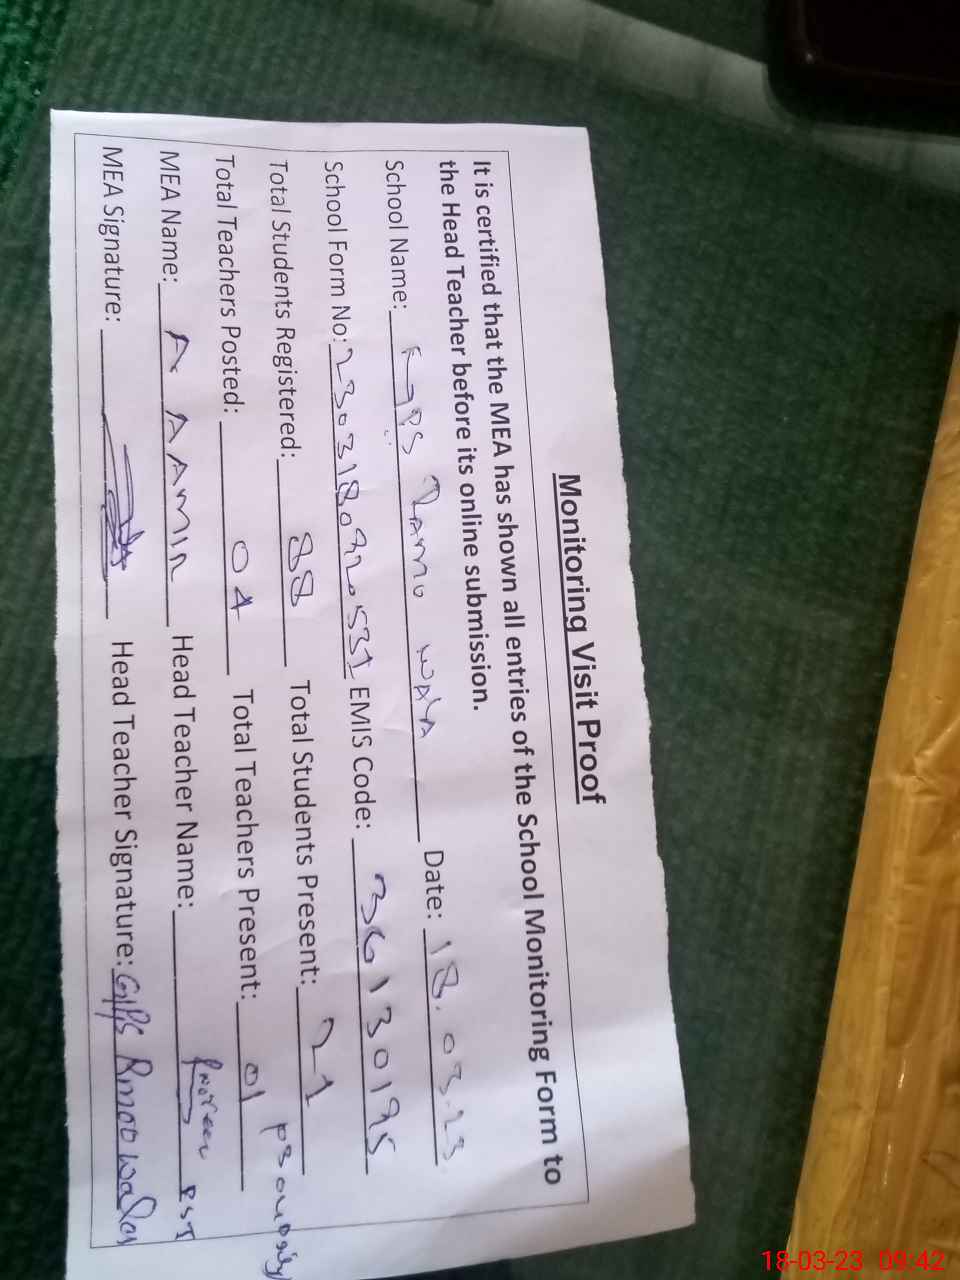 Monitoring Visit Proof
It is certified that the MEA has shown all entries of the School Monitoring Form to
the Head Teacher before its online submission.
School Name: GPS Ramu Wala Date: 18.03.23
School Form No: EMIS Code: 36130195
Total Students Registered: 88 Total Students Present: 21
Total Teachers Posted: 04 Total Teachers Present: 01
MEA Name: A AAMIR Head Teacher Name: PST
MEA Signature: Head Teacher Signature: GPS
18-03-23 09:42